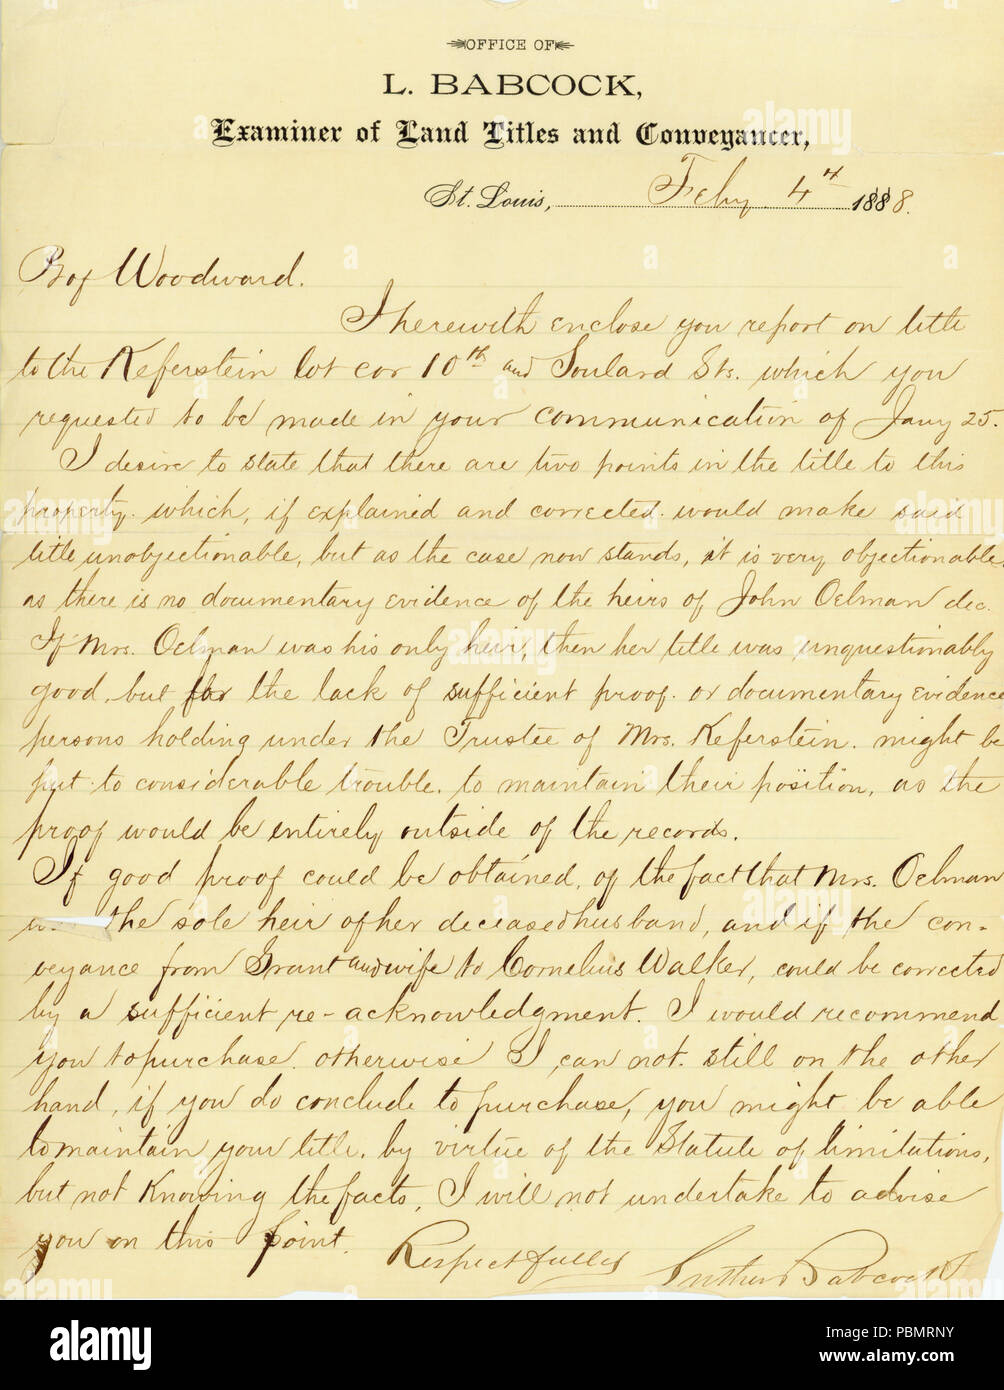 OFFICE OF
L. BABCOCK,
Examiner of Land Titles and Conveyancer,
St. Louis, Feby. 4th 1888.
Prof Woodward.
I herewith enclose you report on title
to the Keferstein lot cor 10th and Soulard Sts. which you
requested to be made in your communication of Jany 25.
I desire to state that there are two points in the title to this
property. which, if explained and corrected. would make said
title unobjectionable, but as the case now stands, it is very objectionable,
as there is no documentary evidence of the heirs of John Oelman dec.
If Mrs. Oelman was his only heir, then her title was unquestionably
good, but for the lack of sufficient proof. or documentary evidence
persons holding under the Trustee of Mrs. Keferstein. might be
put to considerable trouble. to maintain their position, as the
proof would be entirely outside of the records.
If good proof could be obtained, of the fact that Mrs. Oelman
the sole heir of her deceased husband, and if the con-
veyance from Grant and wife to Cornelius Walker, could be corrected
by a sufficient re-acknowledgment. I would recommend
you to purchase. otherwise I can not. still on the other
hand, if you do conclude to purchase, you might be able
to maintain your title. by virtue of the Statute of limitations,
but not knowing the facts, I will not undertake to advise
you on this point.
Respectfully
Babcock
alamy
Image ID: PBMRNY
www.alamy.com